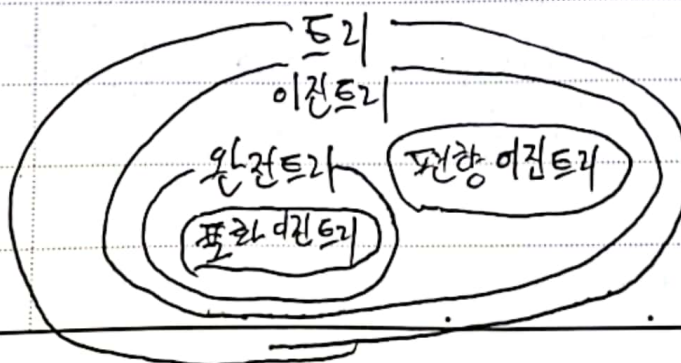 트리
이진트리
완전트리
편향 이진트리
포화 이진트리